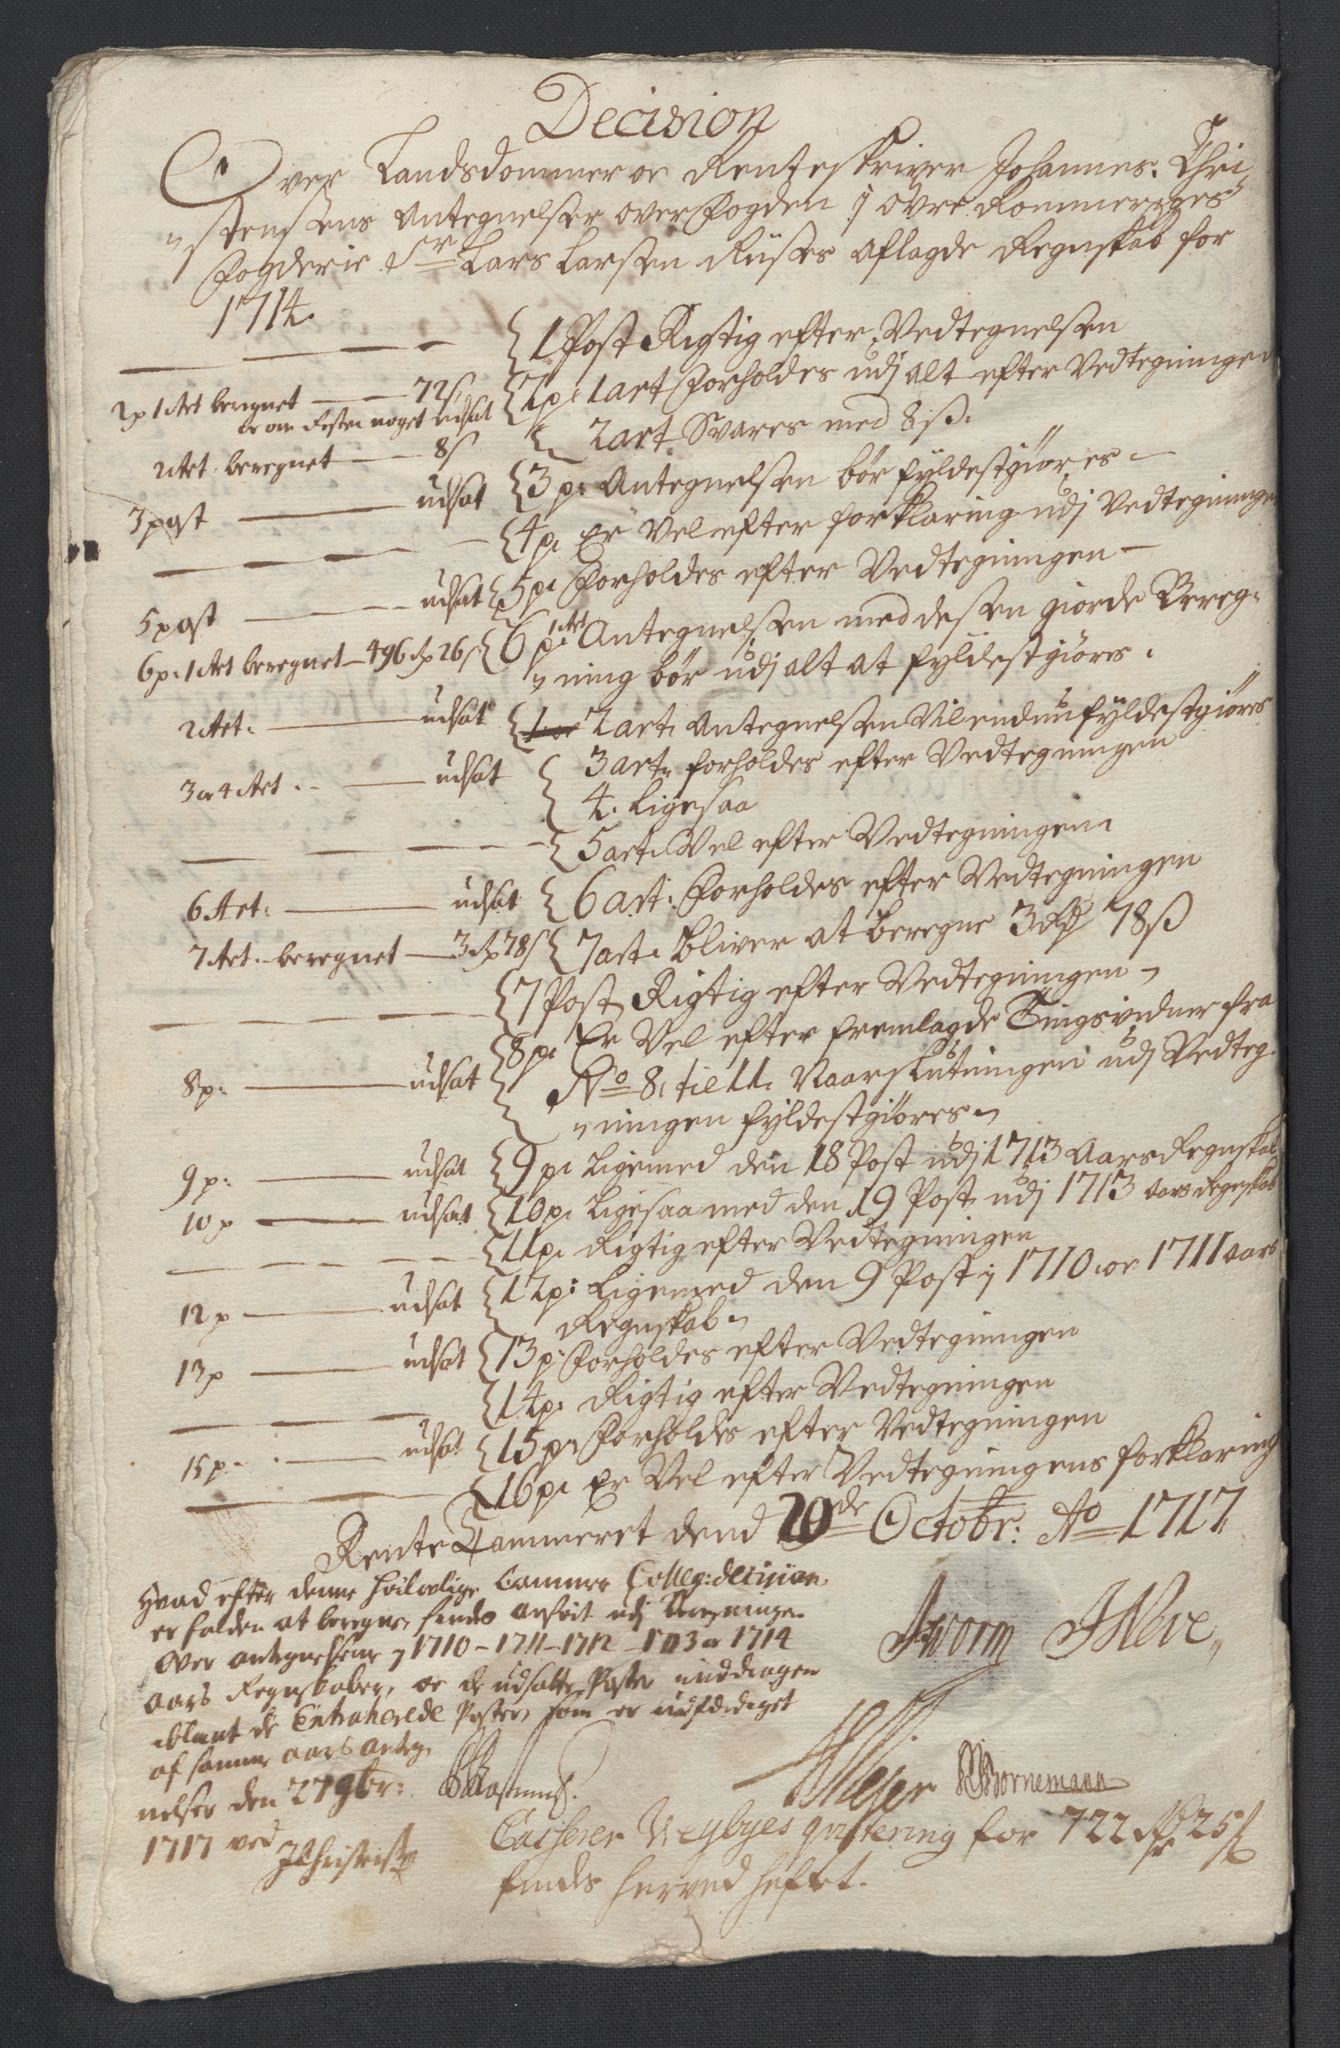 Decision
Over Landsdommer oc Renteskriver Johannes Chri-
stensens Antegnelser over Fogden i Øvre Rommeriges
Fogderie Sr Lars Larsen Riises aflagde Regnskab for
1714.
1 Post Rigtig efter Vedtegnelsen
2p 1 Art beregnet 72s
2p: 1 art Forholdes udj alt efter Vedtegningen
oc om Resten noget udsat
2 Art beregnet 8s
2 art Svares med 8ß.
3 post udsat
3p: Antegnelsen bør fyldestgiøres
4p. Er Vel efter forklaring udj Vedtegningen
5 post udsat
5p. Forholdes efter Vedtegningen
6p. 1 Art beregnet 496 rdr 26s
6p. 1 Art Antegnelsen med desen giorde Bereg-
ning bør udj alt at fyldestgiøres.
2 Art. udsat
2 art. Antegnelsen Vil endnu fyldestgiøres
3 oc 4 Art. udsat
3 art. forholdes efter Vedtegningen
4. Ligesaa
5 art. Vel efter Vedtegningen
6 Art. udsat
6 art. Forholdes efter Vedtegningen
7 Art. beregnet 3 rdr 78s
7 art. bliver at beregne 3 rdr 78ß
7 Post Rigtig efter Vedtegningen
8p. Er Vel efter fremlagde Tingsvidner fra
8p: udsat
No 8 til 11. Naar Slutningen udj Vedteg-
ningen fyldestgiøres
9p: udsat
9p. Ligemed den 18 Post udj 1713 Aars Regnskab
10p udsat
10p. Ligesaa med den 19 Post udj 1713 aars Regnskab
11p. Rigtig efter Vedtegningen
12p udsat
12p: Ligemed den 9 Post i 1710 oc 1711 aars
Regnskab
13p udsat
13p. Forholdes efter Vedtegningen
14p. Rigtig efter Vedtegningen
15p. udsat
15p. Forholdes efter Vedtegningen
16p. Er Vel efter Vedtegningens forklaring
Rente Cammeret dend 20de Octobr: Ao 1717
Hvad efter denne höilovlige Cammer Colleg: decision
er falden at beregne, findes anført udj Beregningen
over antegnelserne i 1710 - 1711 - 1712 - 1713 oc 1714
aars Regnskaber, oc de udsatte Poster inddragen
iblant de Extraherede Poster, som er udfærdiget
af samme aars anteg-
nelser den 27 9br:
1717 ved
JChristens
Worm
JNeve
Meijer
Bornemann
Casserer Weybyes qvitering for 722 rdr 25s
findes herved heftet.